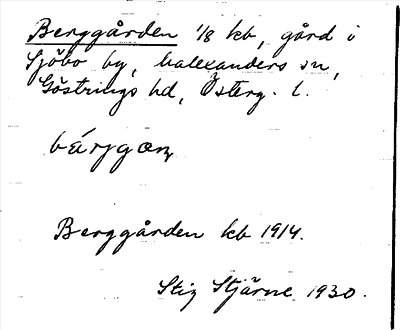 Berggården 1/8 kb, gård i
Sjöbo by, halexanders sn,
Göstrings hd, Österg. l.
Berggården kb 1914.
Stig Stjärne 1930.